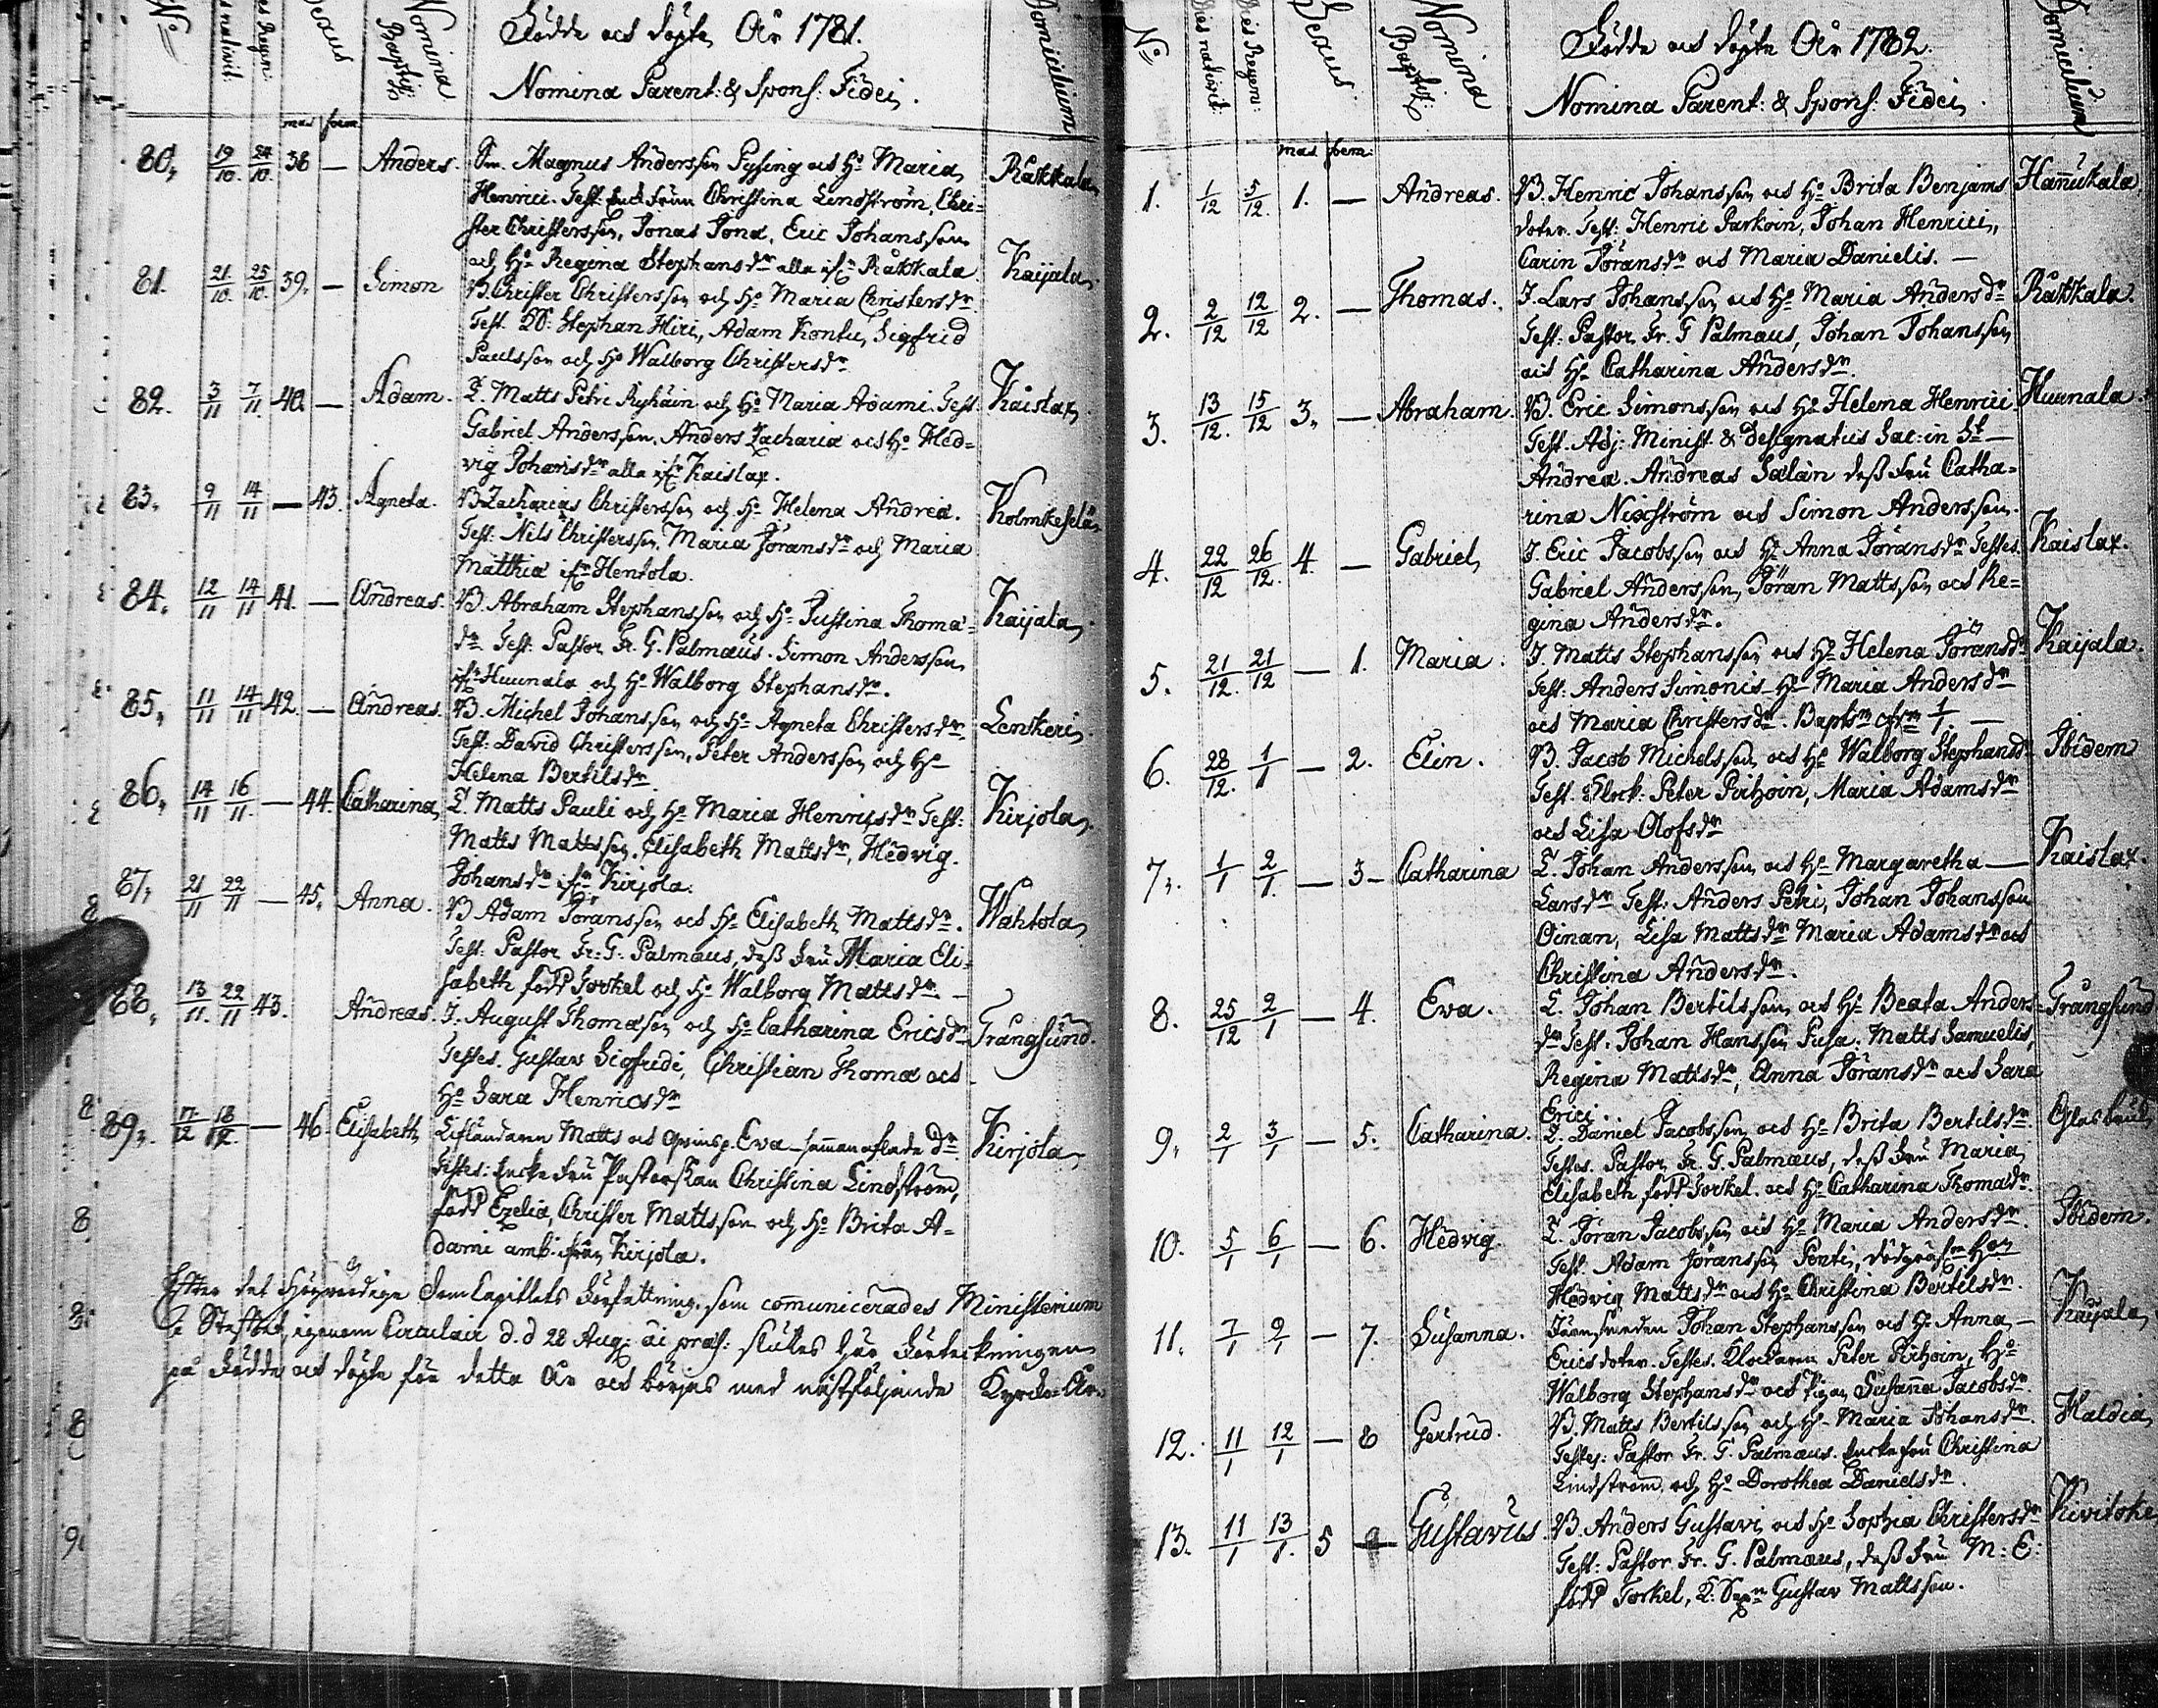 No
Dies nativit:
Dies Regen:
Sexus
Nomina Baptiz:
Födde och döpte År 1781.
Nomina Parent: & Spons: Fidei.
Domicilium
mas foem
80, 19/10. 24/10. 38 — Anders. Magnus Andersson Pysing och Ho Maria Råkkala
Henrici. Test: Enck Frun Christina Lindström, Chri=
ster Christersson, Jonas Jona, Eric Johansson
och Ho Regina Stephansdr alla ifrn Råkkala
81. 21/10. 25/10. 39, — Simon B. Christer Christersson och Ho Maria Christersdr Kaijala,
Test. Stephan Hiri, Adam Kontu, Sigfrid
Paulsson och Ho Walborg Christersdr
82. 3/11 7/11. 40. — Adam. T. Matts Petri Ryhäin och Ho Maria Adami. Test Kaislax,
Gabriel Andersson, Anders Zachariæ och Ho Hed=
vig Johansdr alla ifrn Kaislax.
83, 9/11 14/11 — 43. Agneta. B. Zacharias Christersson och Ho Helena Andreæ. Kolmikeselä,
Test: Nils Christersson, Maria Jöransdr och Maria
Matthiæ ifrn Hentola.
84, 12/11 14/11 41. — Andreas. B. Abraham Stephansson och Ho Justina Thomæ= Kaijala,
dr Test: Pastor Fr. G. Palmæus. Simon Andersson
ifrn Huunala och Ho Walborg Stephansdr.
85, 11/11 14/11 42. — Andreas. B. Michel Johansson och Ho Agneta Christersdr. Lenkeri,
Test: David Christersson, Peter Andersson och Ho
Helena Bertilsdr
86, 14/11 16/11. — 44. Catharina, T. Matts Pauli och Ho Maria Henricsdr Test: Kirjola,
Matts Mattsson, Elisabeth Mattsdr, Hedvig
Johansdr ifrn Kirjola.
87, 21/11 22/11 — 45, Anna. B Adam Jöransson och Ho Elisabeth Mattsdr. Wahtola,
Test: Pastor Fr: G: Palmæus, dess Fru Maria Eli=
sabeth född Forkel och Ho Walborg Mattsdr —
88, 13/11. 22/11 43. Andreas. J. August Thomæson och Ho Catharina Ericsdr Trångsund.
Testes. Gustav Sigfridi, Christian Thomæ och
Ho Sara Henricsdr
89,. 17/12 18/12. — 46. Elisabeth, Lifländaren Matts och Eva — sammanaflade dr Kirjola,
Testes: Enckefru Pastorskan Christina Lindström,
född Ezelia, Christer Mattsson och Ho Brita A=
dami amb: från Kirjola.
Efter det Högvördige DomCapitlets Författning, som communicerades Ministerium
i Stiftet, igenom Circulair d. d 28 Aug: slutes här Förteckningen
på Födde och döpte för detta År och börjas med nästföljande Kyrcko=År.
No
Dies nativit:
Dies Regen:
Sexus
Nomina Baptiz:
Födde och döpte År 1782.
Nomina Parent: & Spons: Fidei,
Domicilium
mas foem:
1. 1/12 5/12. 1. — Andreas. B. Henric Johansson och Ho Brita Benjams Hannukala
doter. Test: Henric Parkoin, Johan Henrici,
Carin Jöransdr och Maria Danielis. —
2. 2/12 12/12 2. — Thomas. J. Lars Johansson och Ho Maria Andersdr Råkkala.
Test: Pastor Fr. G Palmæus, Johan Johansson
och Ho Catharina Andersdr.
3. 13/12. 15/12 3, — Abraham. B. Eric Simonsson och Ho Helena Henrici Huunala.
Test. Adj: Minist. & designatus Sac: in St —
Andrea. Andreas Salán dess Fru Catha=
rina Nixström och Simon Andersson.
4. 22/12 26/12. 4. — Gabriel, J. Eric Jacobsson och Ho Anna Jöransdr Testes. Kaislax.
Gabriel Andersson, Jöran Mattsson och Re=
gina Andersdr.
5. 21/12. 21/12 — 1. Maria. J. Matts Stephansson och Ho Helena Jöransdr Kaijala.
Test: Anders Simonis Ho Maria Andersdr
och Maria Christersdr. Baptsm cfrm 1/1. —
6. 28/12. 1/1 — 2. Elin. B. Jacob Michelsson, och Ho Walborg Stephansdr Ibidem
Test. Klock: Peter Pirhoin, Maria Adamsdr
och Lisa Olofsdr
7,. 1/1 2/1. — 3 — Catharina T. Johan Andersson och Ho Margaretha — Kaislax.
Larsdr Test: Anders Petri, Johan Johansson
Oinan, Lisa Mattsdr Maria Adamsdr och
Christina Andersdr.
8. 25/12 2/1 — 4. Eva. T. Johan Bertilsson och Ho Beata Anders= Trångsund
dr Test. Johan Hansson Pusa. Matts Samuelis,
Regina Mattsdr, Anna Jöransdr och Sara
Erici.
9, 2/1 3/1 — 5. Catharina. T. Daniel Jacobsson och Ho Brita Bertilsdr. Glasbruk,
Testes. Pastor Fr. G. Palmæus, dess Fru Maria
Elisabeth född Forkel. och Ho Catharina Thomædr.
10. 5/1 6/1 — 6. Hedvig. T. Jöran Jacobsson och Ho Maria Andersdr. Ibidem.
Test. Adam Jöransson Penti,
Hedvig Mattsdr och Ho Christina Bertilsdr.
11. 7/1 9/1 — 7. Susanna. Johan Stephansson och Ho Anna — Kaijala,
Ericsdoter. Testes. Klockaren Peter Pirhoin, Ho
Walborg Stephansdr och Pigan Susanna Jacobsdr.
12. 11/1 12/1 — 8 Gertrud. B. Matts Bertilsson och Ho Maria Johansdr. Kaldia,
Testes: Pastor Fr. G. Palmæus. Enckefru Christina
Lindström, och Ho Dorothea Danielsdr.
13. 11/1 13/1. 5 Gustavus. B. Anders Gustavi och Ho Sophia Christersdr Kivitoke
Test: Pastor Fr. G. Palmæus, dess Fru M: E:
född Forkel, Gustav Mattsson.